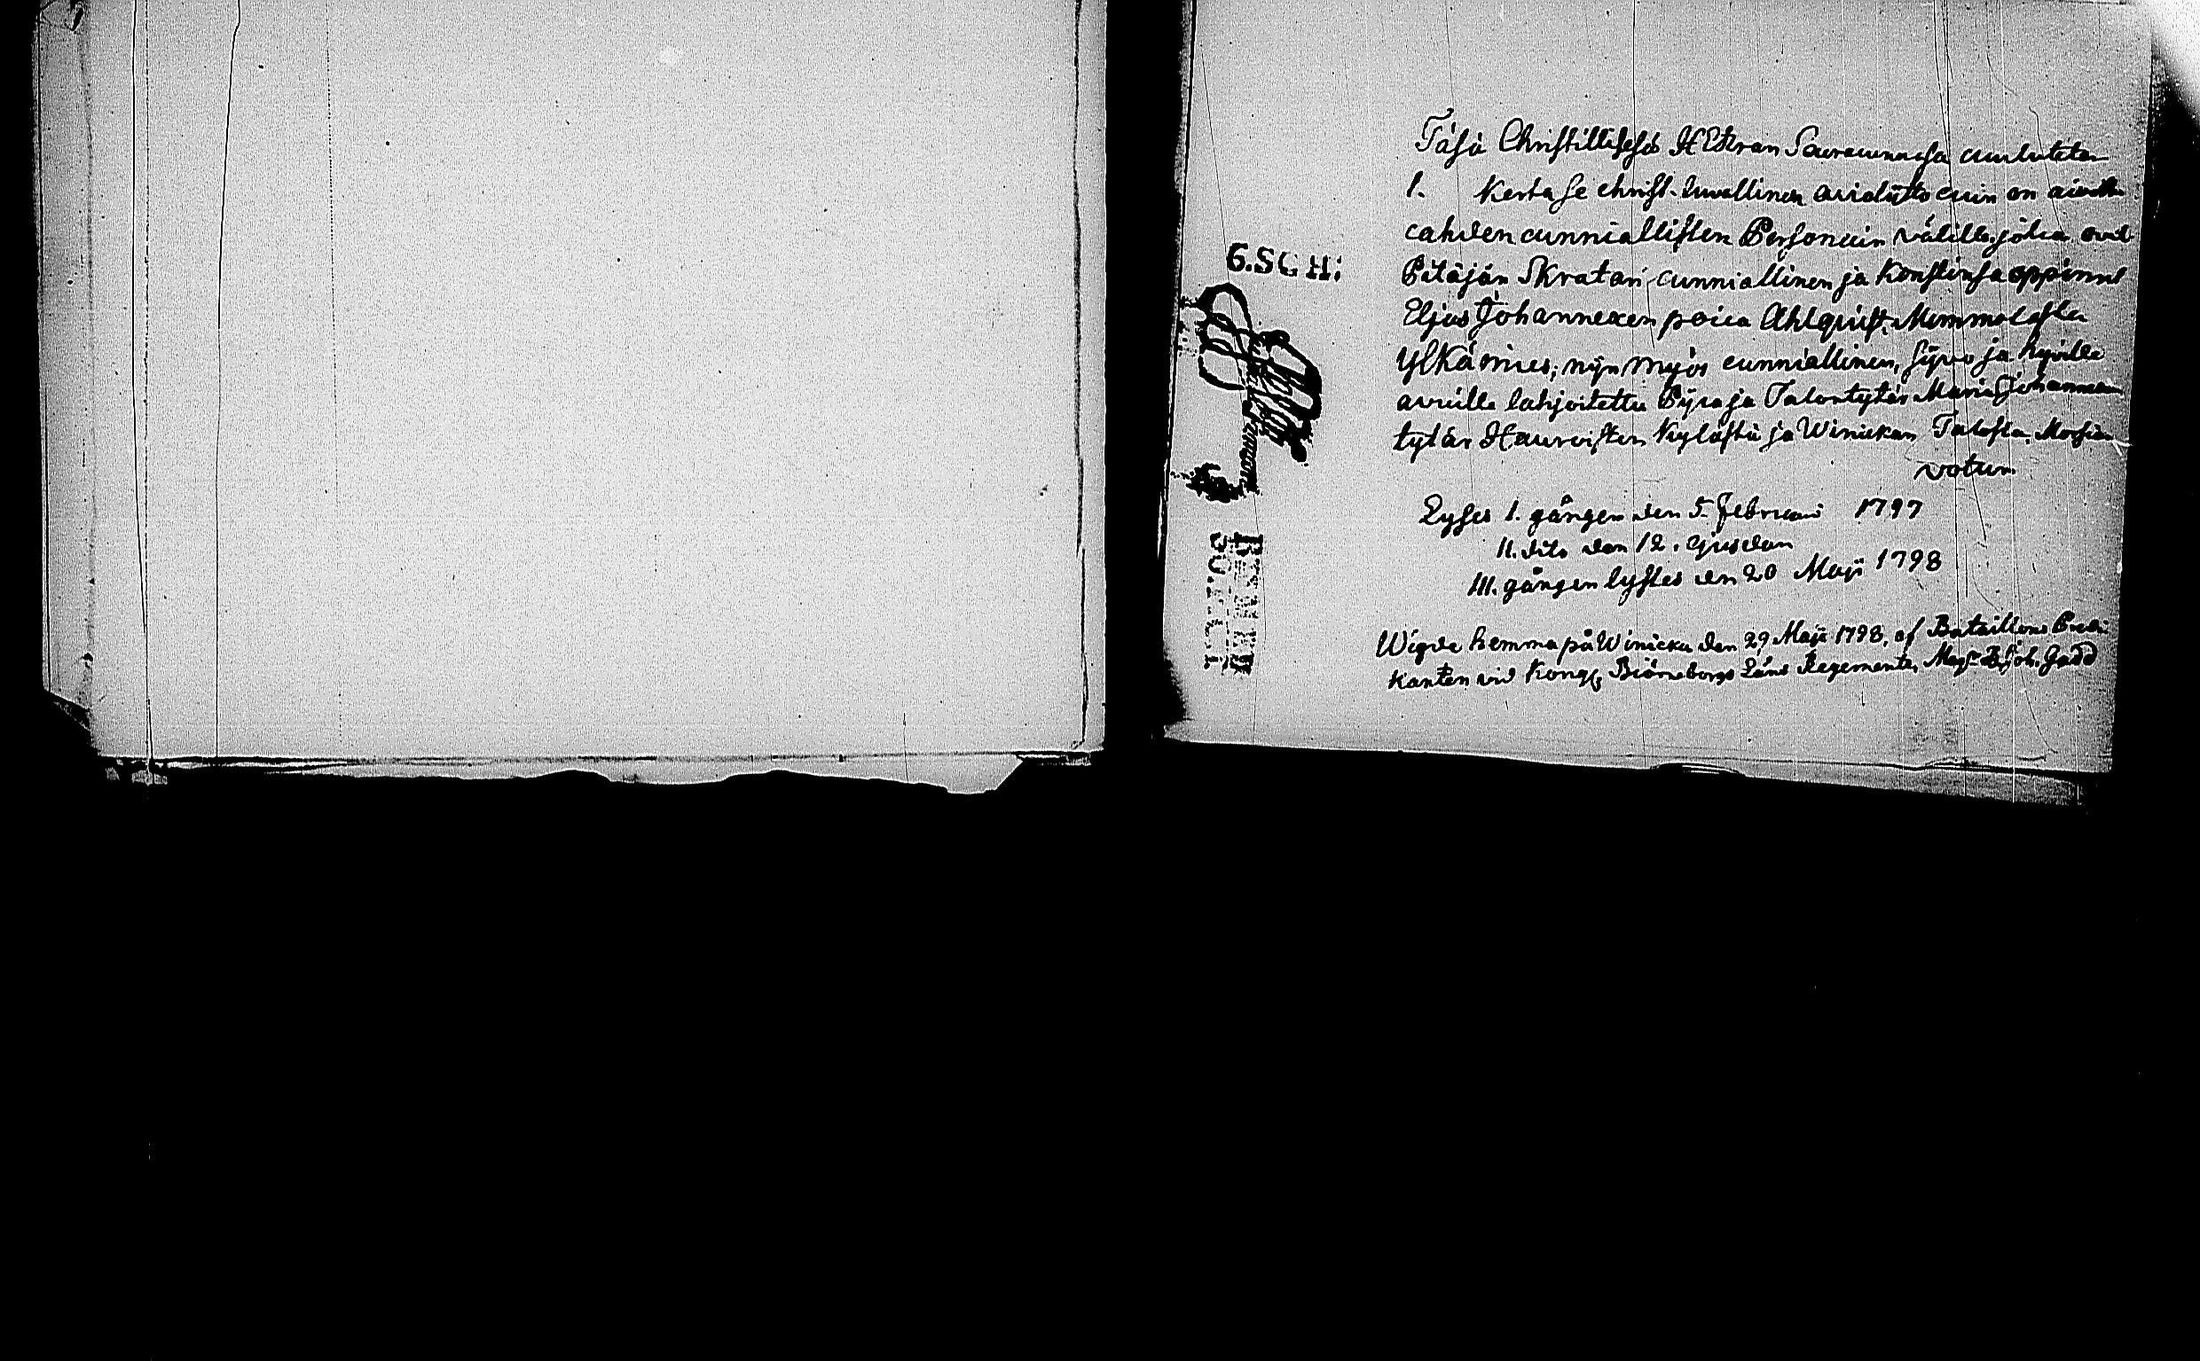 Täsä Christillisesä HERran Seuracunnasa cuulutetan
1. Kerta se christ. luvallinen aviokäsky cuin on aiwottu
cahden cunniallisten Personain välille, jotca ovat
Pitäjän Skrätäri cunniallinen ja Konstinsa oppinut
Eljas Johannexen poica Ahlquist Mommolasta
Ylkä mies; nijn myös cunniallinen, sijvo ja hyville
avuille lahjoitettu Pijca ja Talontytär Maria Johannexen
tytär Haurvisten Kylästä ja Winickan Talosta. Morsian
votum
Lystes 1. gången den 5. Februari 1797
II. dito den 12. ejusdem
III. gången lystes den 20 Maji 1798
Wigde hemma på Winicka den 29 Maji 1798, af Bataillons Predi
kanten vid Kongl. Biörneborgs Läns Regemente, Mag. Joh. Gadd
G.SCH: